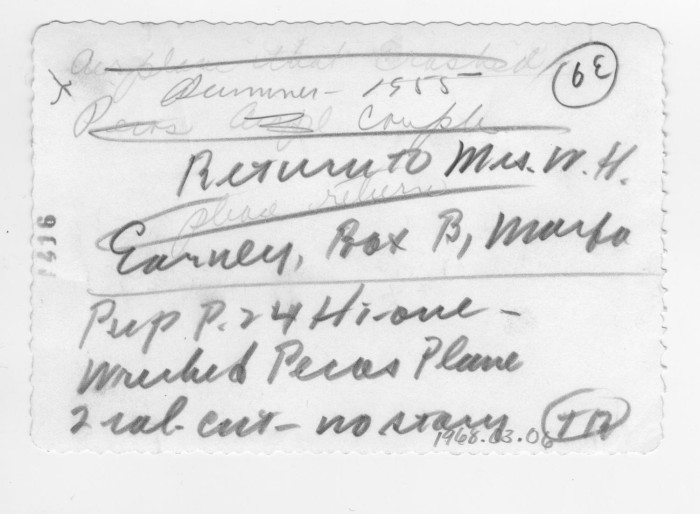 Airplane that Crashed
39
Summer - 1955
Pecos couple
Return to Mrs. W. H.
please return
Earney, Box B, Marfa
1216
Pup P. 24 Hi-one -
Wrecked Pecos Plane
2 col. cut - no story
1968.03.08